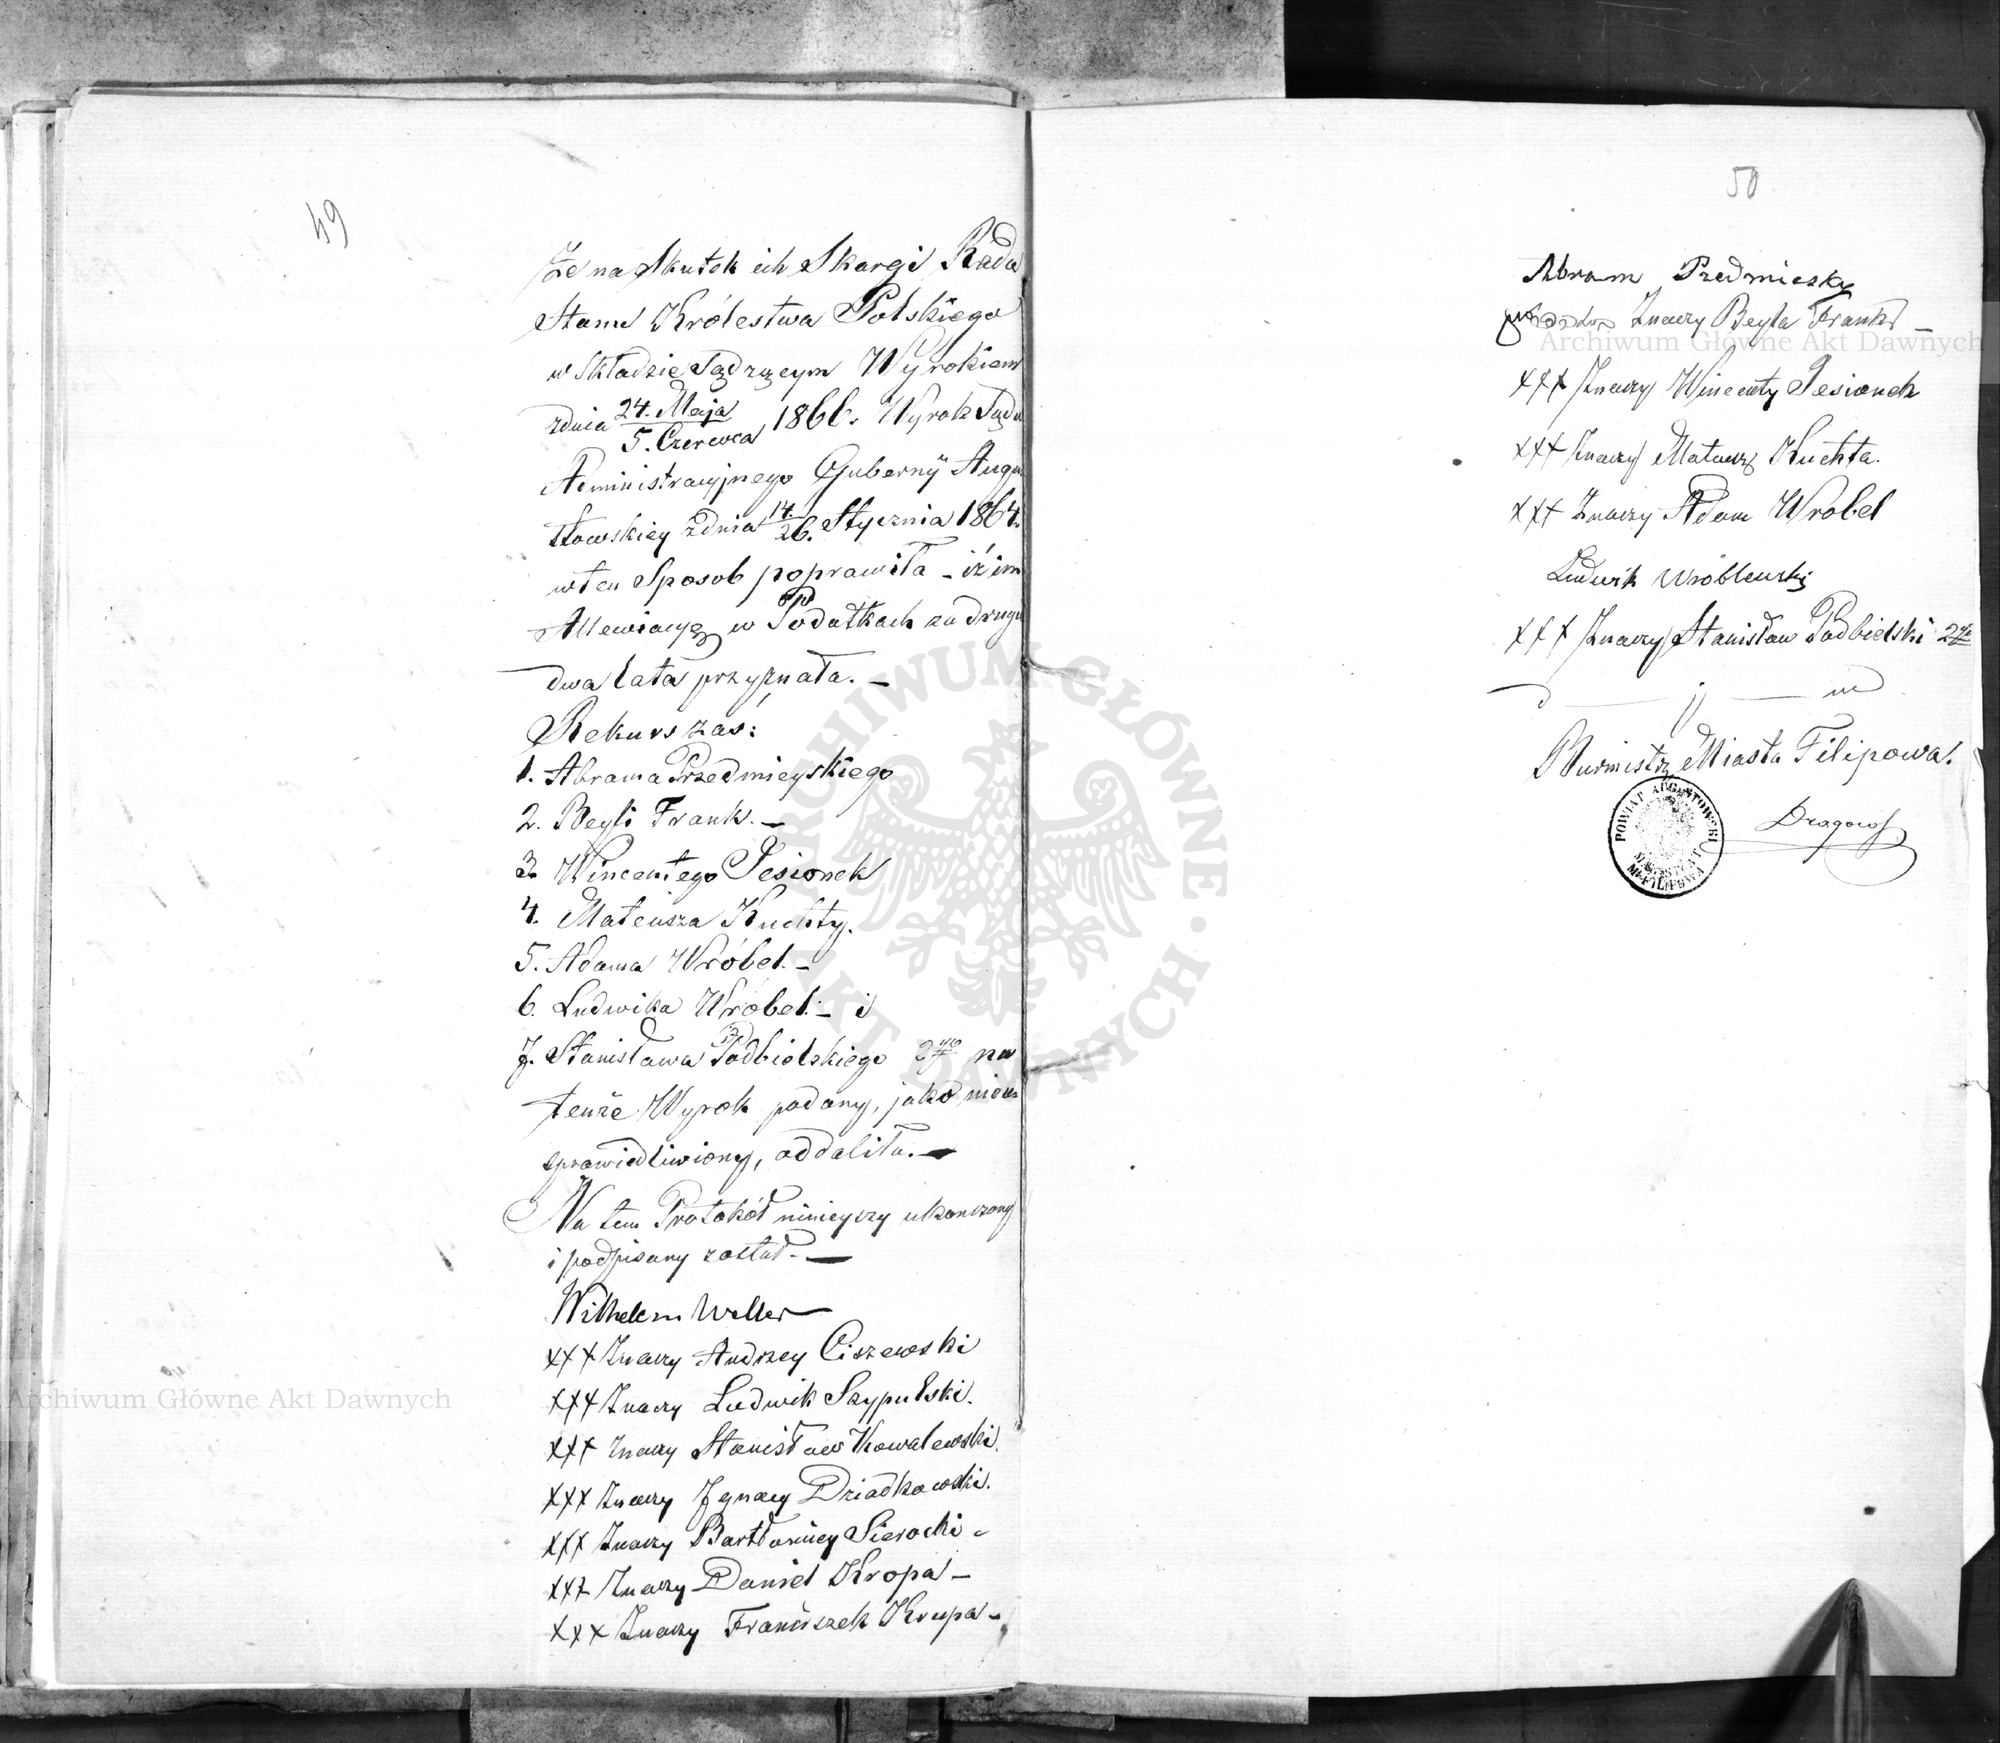 49
że na Skutek ich Skargi Rada
Stanu Królestwa Polskiego
w Składzie Sądzącym Wyrokiem
z dnia 24. Maja / 5. Czerwca 1866. Wyrok Sądu
Administracyjnego Gubernÿ Augu
stowskiey z dnia 14. / 26. Stycznia 1864.
w ten Sposob poprawiła – iż im
Allewiacyą w Podatkach za drugie
dwa lata przyznała. –
Rekurs zaś:
1. Abrama Przedmieyskiego
2. Beyli Frank. –
3. Wincentego Jesionek
4. Mateusza Kuchty.
5. Adama Wróbel. –
6. Ludwika Wróbel. – i
7. Stanisława Podbielskiego 2go na
tenże Wyrok podany, jako nieu
sprawiedliwiony, oddaliła. –
Na tem Protokół ninieyszy ukonczony
i podpisany został. –
Wilhelm Weller
XXX Znaczy Andrzey Ciszewski
XXX Znaczy Ludwik Szypulski.
XXX Znaczy Stanisław Kowalewski.
XXX Znaczy Ignacy Dziadkowski.
XXX Znaczy Bartłomiey Sierocki
XXX Znaczy Daniel Kropa –
XXX Znaczy Franciszek Krupa –
50
Abram Przedmiesky
Znaczy Beyla Frank –
XXX Znaczy Wincenty Jesionek
XXX Znaczy Mateusz Kuchta.
XXX Znaczy Adam Wrobel
Ludwik Wróblewski
XXX Znaczy Stanisław Podbielski 2gi
Burmistrz Miasta Filipowa.
POWIAT AUGUSTOWSKI
M. FILIPOWA
Archiwum Główne Akt Dawnych
Archiwum Główne Akt Dawnych
ARCHIWUM GŁÓWNE AKT DAWNYCH